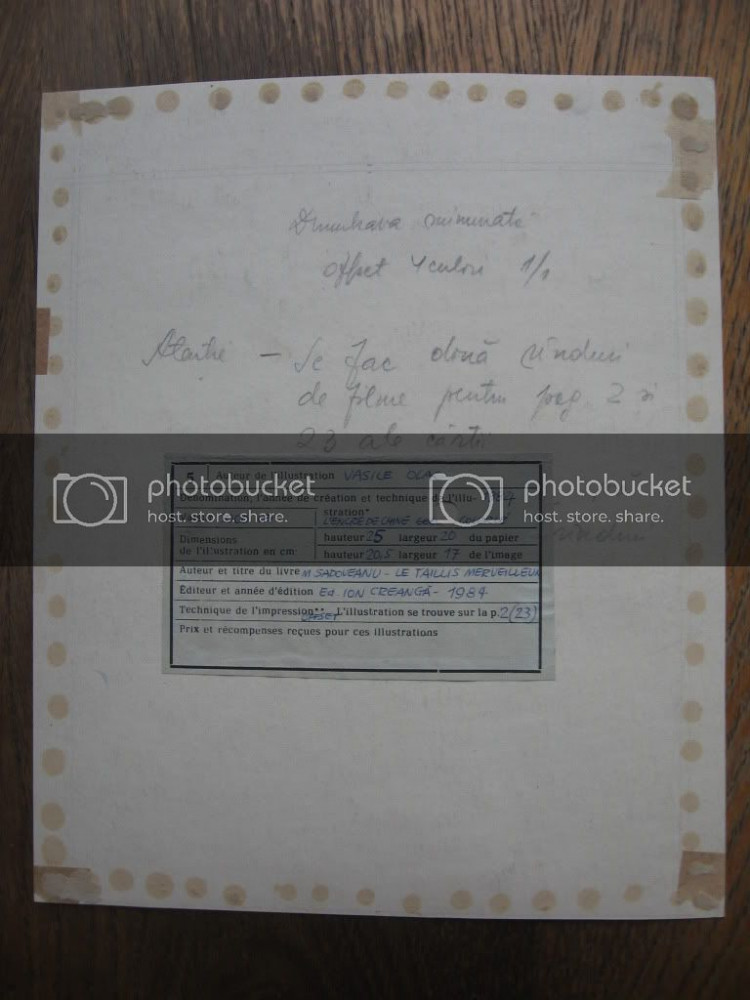 Dumbrava minunată
offset 4 culori 1/1
Atenție – Se fac două rînduri
de filme pentru pag 2 și
23 ale cărții
photobucket
host. store. share.
photobucket
host. store. share.
rînduri
5 Auteur de l'illustration VASILE OLA
Dénomination, l'année de création et technique de l'illu- 1984
stration*
L'ENCRE DE CHINE
Dimensions
de l'illustration en cm:
hauteur 25 largeur 20 du papier
hauteur 20,5 largeur 17 de l'image
Auteur et titre du livre M SADOVEANU - LE TAILLIS MERVEILLEUX
Éditeur et année d'édition Ed. ION CREANGĂ - 1984
Technique de l'impression** OFSET L'illustration se trouve sur la p. 2(23)
Prix et récompenses reçues pour ces illustrations